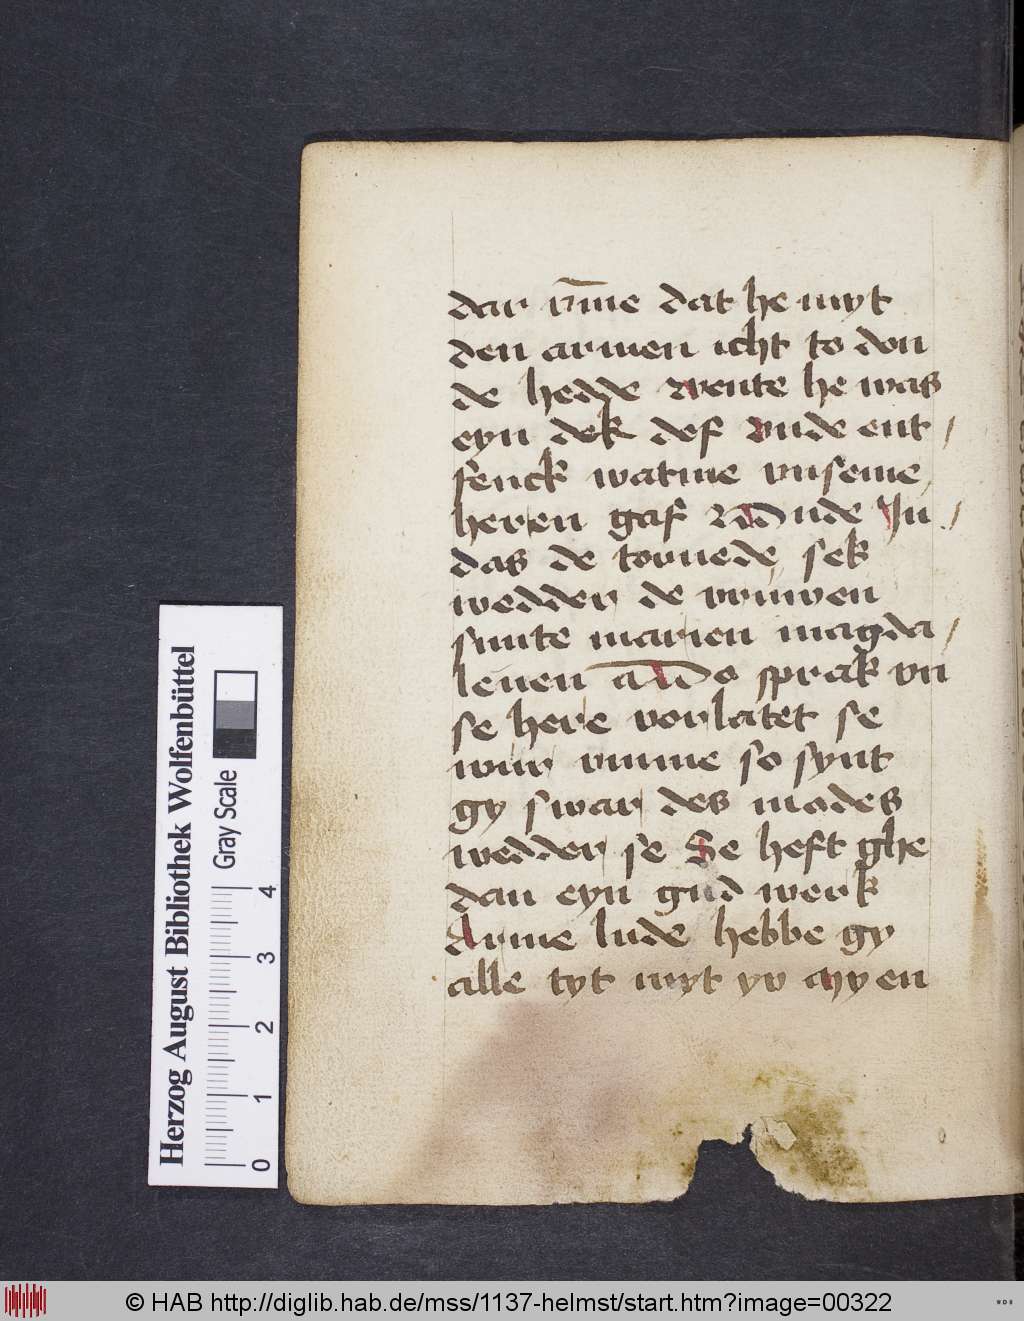 dar v̄me dat he myt
den armen icht to don
de hedde wente he was
eyn dek def vnde ent /
fenck watme vnseme
heren gaf vnde Ju /
das de tornede sek
wedder de vruwen
sunte marien magda /
lenen sprak vn
se here vorlatet se
wur vmme so synt
gy swar des modes
wedder se Se heft ghe
dan eyn gud werk
Arme lude hebbe gy
alle tyt myt yv en
Herzog August Bibliothek Wolfenbüttel
Gray Scale
0 1 2 3 4
© HAB http://diglib.hab.de/mss/1137-helmst/start.htm?image=00322